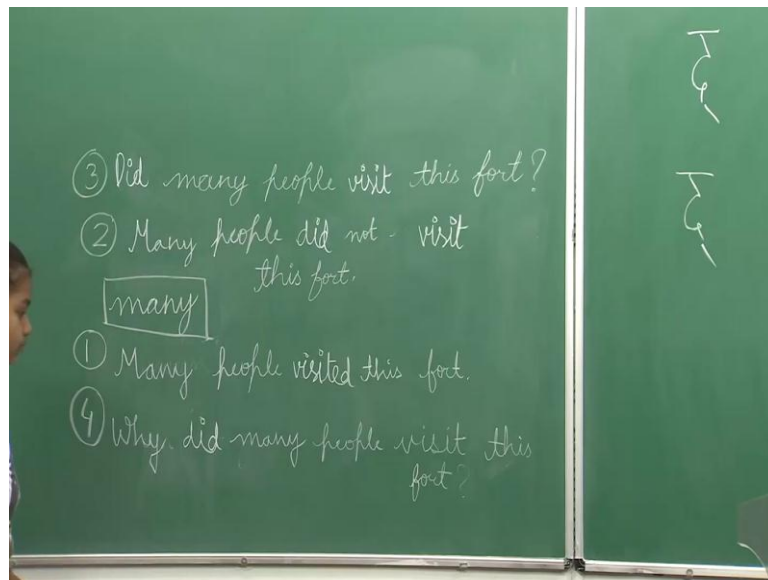 ③ Did many people visit this fort?
② Many people did not - visit
this fort.
many
① Many people visited this fort.
④ Why did many people visit this
fort?